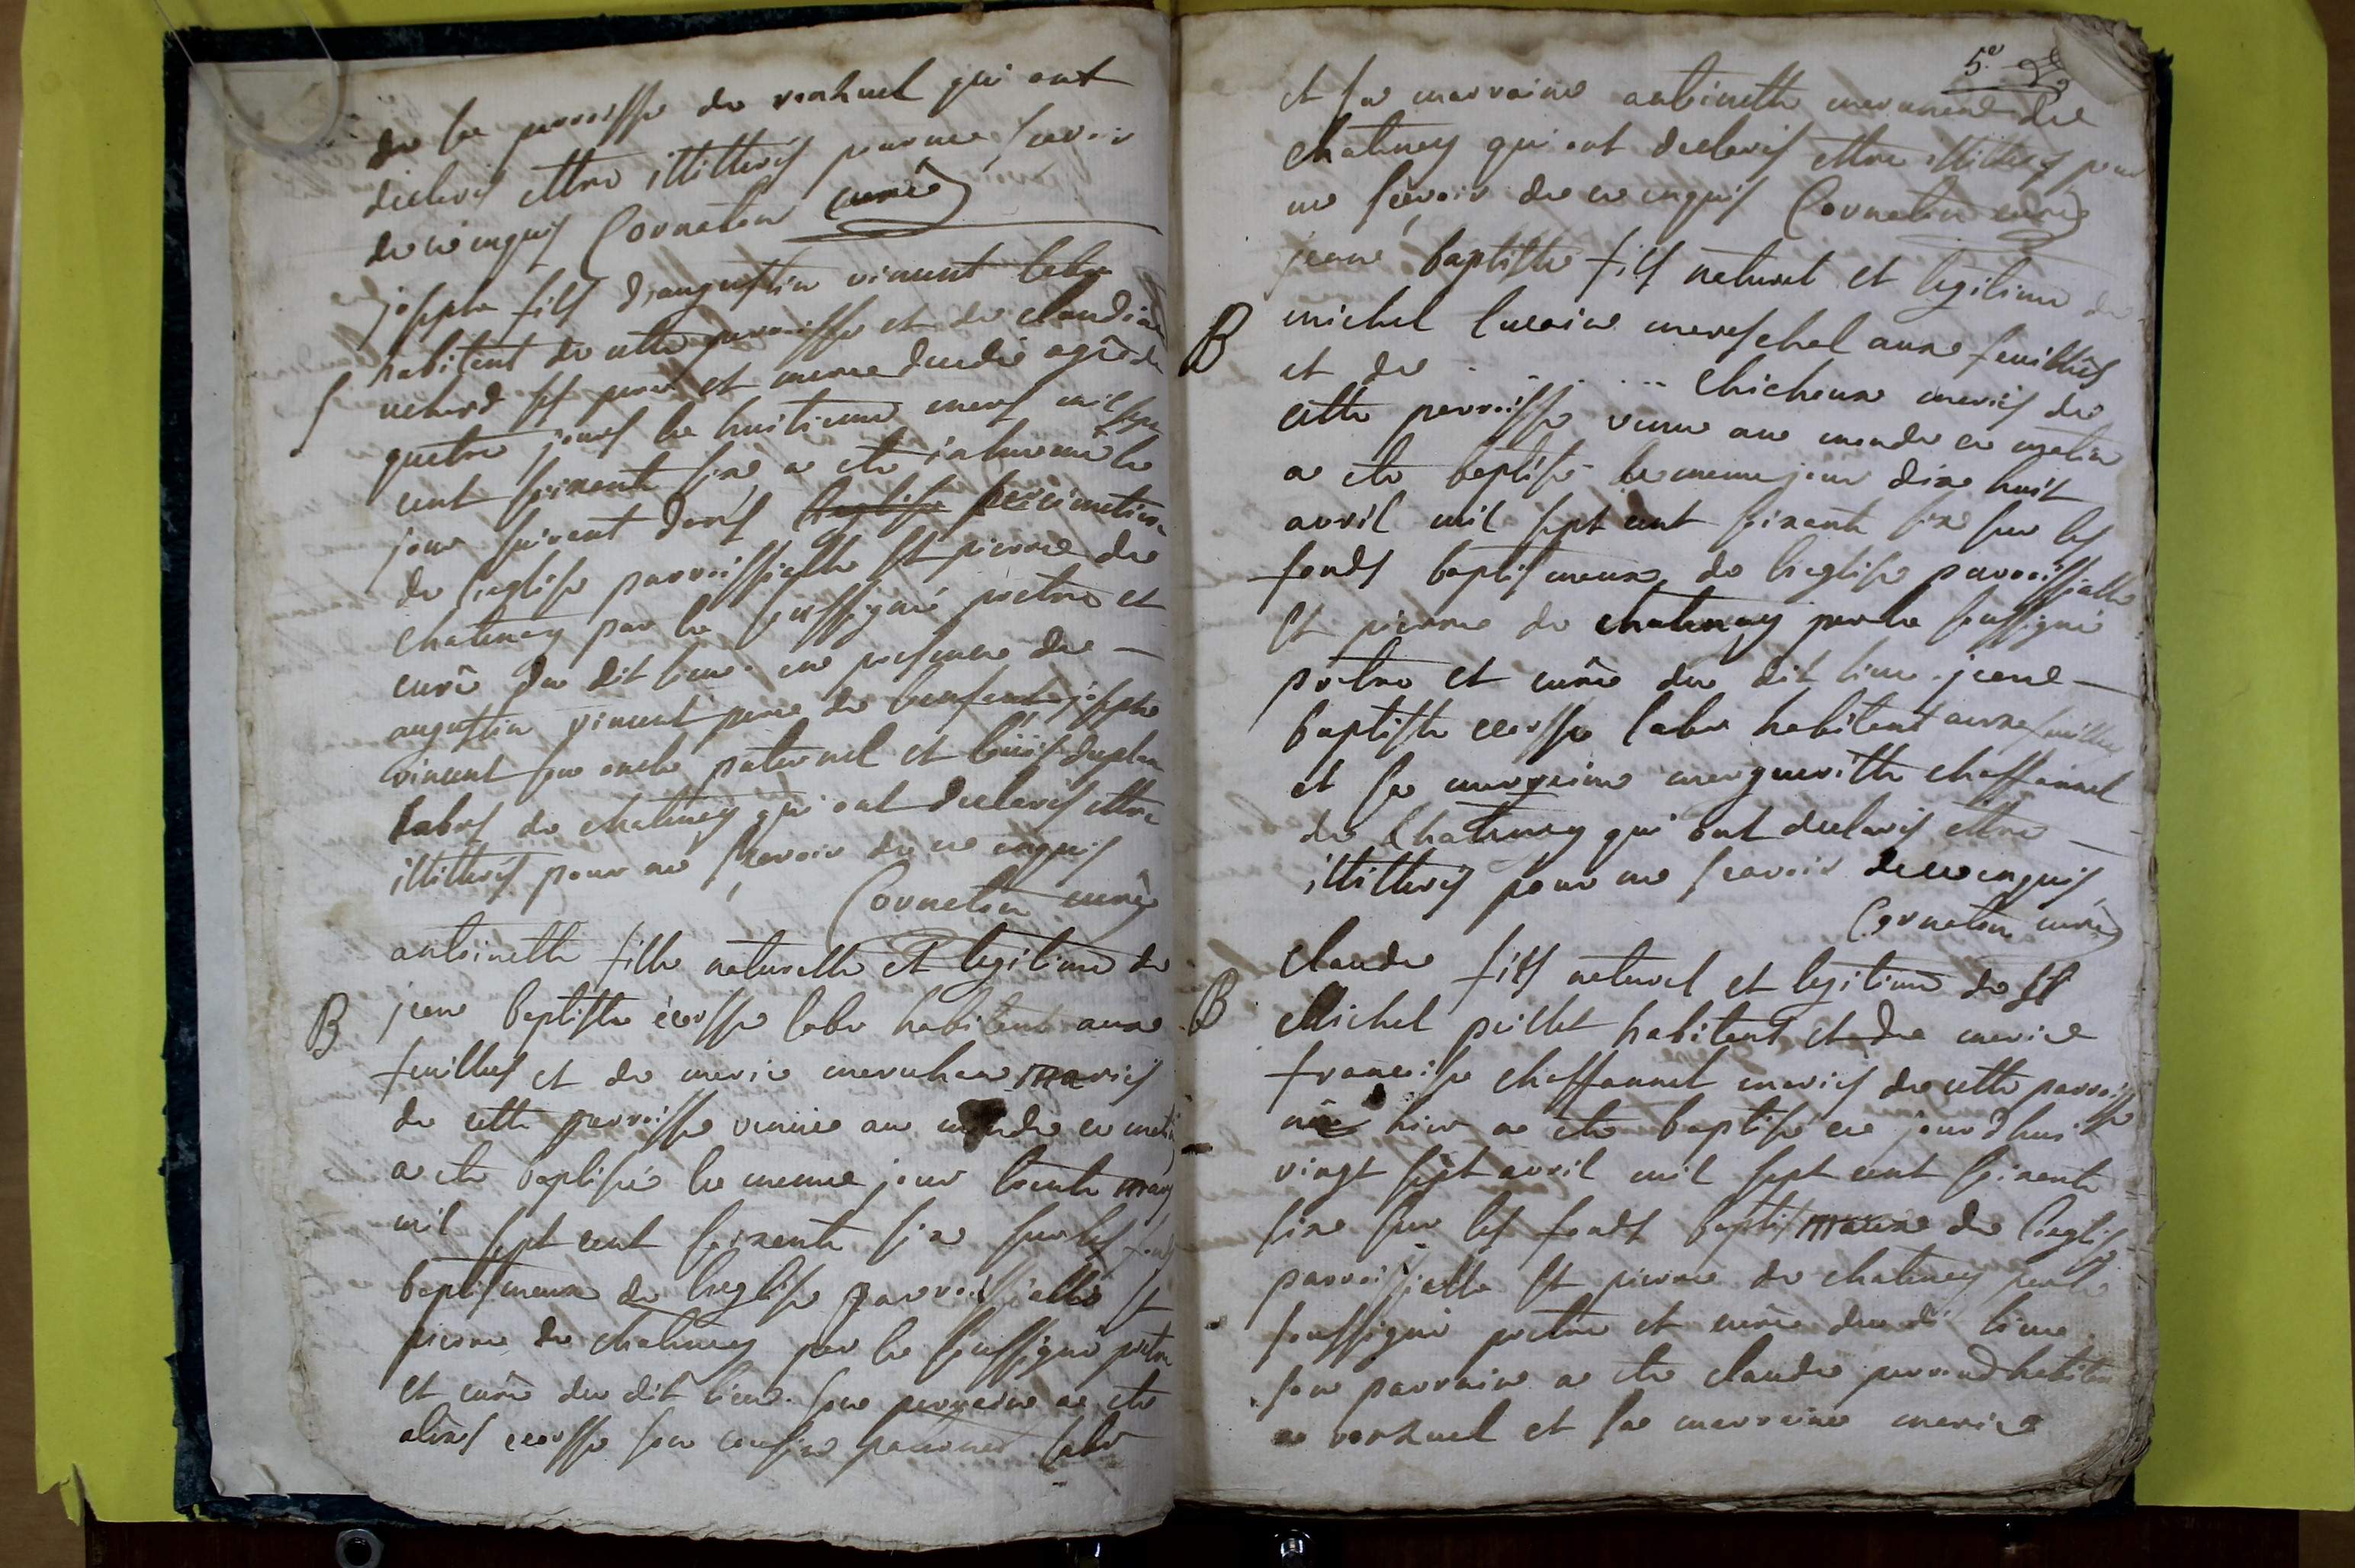 de la parroisse de vernuel qui ont
declarés ettre illitterés pour ne scavoir
de ce enquis Cornaton curé
josepht fils d'augustin vincent labr
habitant de cette parroisse et de claudine
S
ses pere et mere decedé agé de
quatre jours le huitieme mars mil sept
cent soixante six a eté inhumé le
jour suivant dans l'eglise le cimetiere
de l'eglise parroissialle St pierre de
chatenay par le soussigné pretre et
curé du dit lieu. en presence de
augustin vincent pere de l'enfant josepht
vincent son oncle paternel et loüis duplan
labrs de chatenay qui ont declarés ettre
illitterés pour ne scavoir de ce enquis
Cornaton curé
antoinette fille naturelle et legitime de
B
jean baptiste écosse labr habitant aux
feuillées et de marie maréchau mariés
de cette parroisse venüe au monde ce matin
a eté baptisée le meme jour trente mars
mil sept cent soixante six sur les fonds
baptismaux de l'eglise parroissialle St
pierre de chatenay par le soussigné pretre
et curé du dit lieu. son parrain a eté
ecosse son cousin labr
5e
et sa marraine antoinette de
chatenay qui ont declarés ettre illitterés pour
ne scavoir de ce enquis Cornaton curé
jean baptiste fils naturel et legitime de
B
michel mareschal aux feuillées
et de . . . . ... Chicheux mariés de
cette parroisse venu au monde ce matin
a eté baptisé le meme jour dix huit
avril mil sept cent soixante six sur les
fonds baptismaux de l'eglise parroissialle
St pierre de chatenay par le soussigné
prêtre et curé du dit lieu. jean
baptiste ecosse labr habitant aux feuillées
et sa marraine margueritte chaffannel
de Chatenay qui ont declarés ettre
illitterés pour ne scavoir de ce enquis
Cornaton curé
claude fils naturel et legitime de St
B
Michel pillet habitant et de marie
francoise chaffannel mariés de cette parroisse
né hier a eté baptisé ce jourd'hui
vingt sept avril mil sept cent soixante
six sur les fonds baptismaux de l'eglise
parroissialle St pierre de chatenay par le
soussigné pretre et curé du dt lieu.
son parrain a eté claude habitant
a vernuel et sa marraine marie